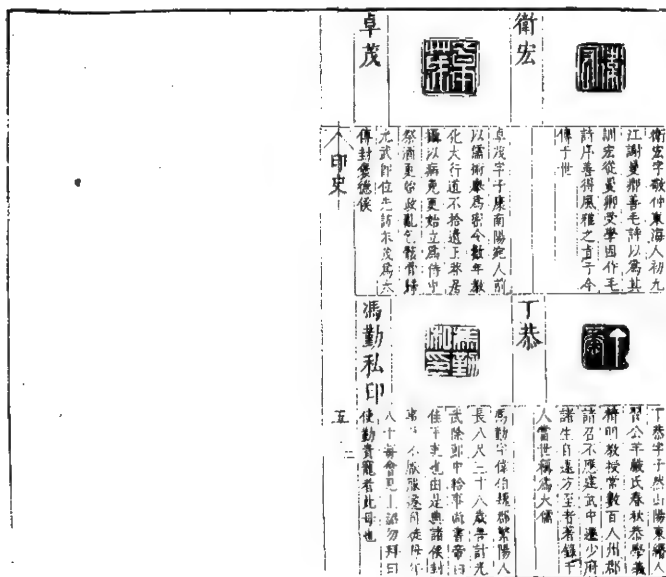 衛宏
衛宏字敬仲東海人初九
江謝曼卿善毛詩以為其
訓宏從曼卿受學因作毛
詩序善得風雅之旨于今
傳于世
卓茂
卓茂字子康南陽宛人前
以儒術舉為密令數年教
化大行道不拾遺王莽居
攝以病免更始立為侍中
祭酒更始政亂乞骸骨歸
光武即位先訪求茂為太
傅封褒德侯
印史
丁恭
丁恭字子然山陽東緡人
習公羊嚴氏春秋恭學義
精明教授常數百人州郡
請召不應建武中遷少府
諸生自遠方至者著錄千
人當世稱為大儒
馮勤私印
馮勤字偉伯魏郡繁陽人
長八尺三十八歲善計光
武除郎中給事尚書帝曰
佳乎吏也由是與諸侯封
事
八十每會見上詔勿拜曰
使勤貴寵者此母也
五